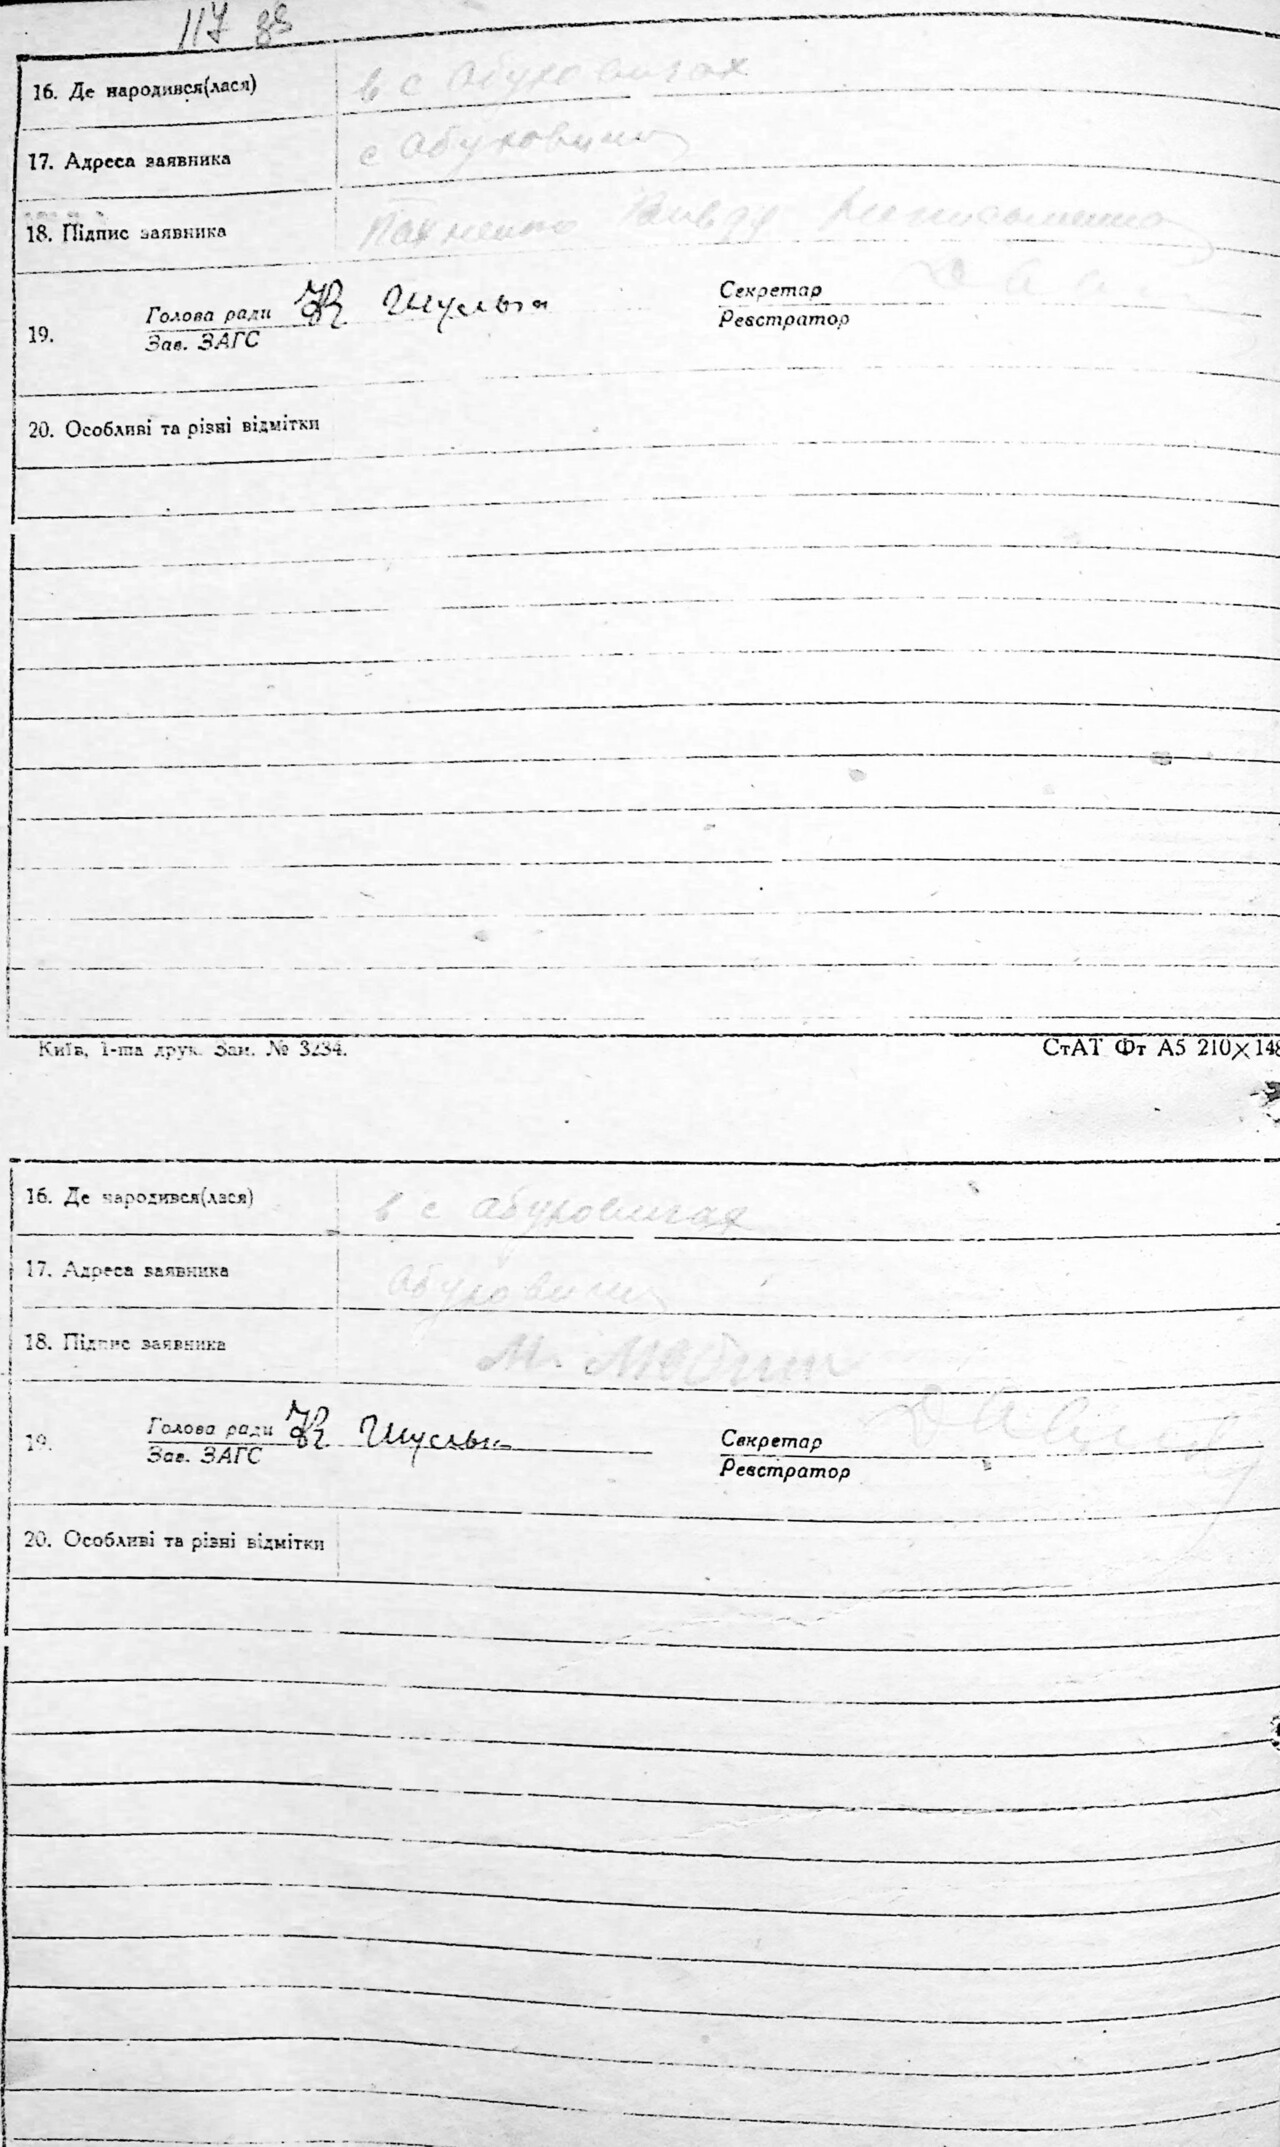 117 88
16. Де народився(лася) в с Абуховичах
17. Адреса заявника с Абуховичи
18. Підпис заявника
Голова ради Шульга Секретар
19. Зав. ЗАГС Реєстратор
20. Особливі та різні відмітки
Київ, 1-ша друк. Зам. № 3234. СтАТ Фт А5 210×148
16. Де народився(лася) в с Абуховичах
17. Адреса заявника Абуховичи
18. Підпис заявника М.
Голова ради Шульга Секретар
19. Зав. ЗАГС Реєстратор
20. Особливі та різні відмітки